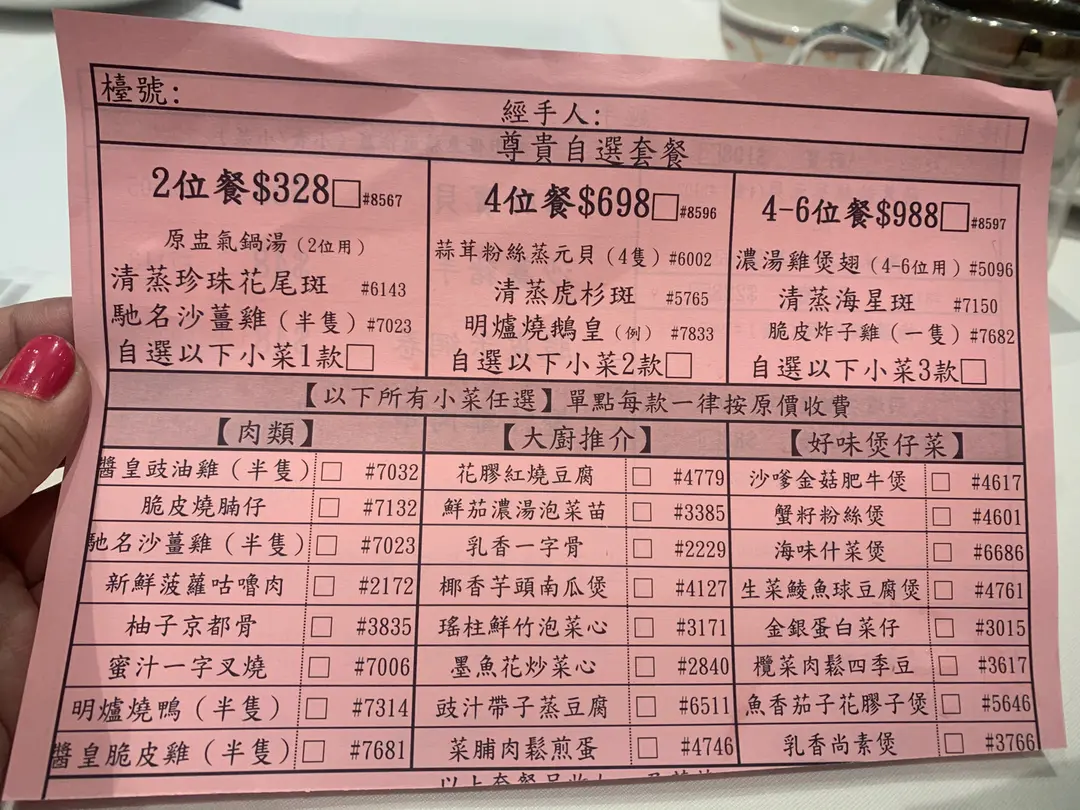 檯號：
經手人：
尊貴自選套餐
2位餐$328□#8567
原盅氣鍋湯（2位用）
清蒸珍珠花尾斑 #6143
馳名沙薑雞（半隻）#7023
自選以下小菜1款□
4位餐$698□#8596
蒜茸粉絲蒸元貝（4隻）#6002
清蒸虎杉斑 #5765
明爐燒鵝皇（例）#7833
自選以下小菜2款□
4-6位餐$988□#8597
濃湯雞煲翅（4-6位用）#5096
清蒸海星斑 #7150
脆皮炸子雞（一隻）#7682
自選以下小菜3款□
【以下所有小菜任選】單點每款一律按原價收費
【肉類】
醬皇豉油雞（半隻）□ #7032
脆皮燒腩仔 □ #7132
馳名沙薑雞（半隻）□ #7023
新鮮菠蘿咕嚕肉 □ #2172
柚子京都骨 □ #3835
蜜汁一字叉燒 □ #7006
明爐燒鴨（半隻）□ #7314
醬皇脆皮雞（半隻）□ #7681
【大廚推介】
花膠紅燒豆腐 □ #4779
鮮茄濃湯泡菜苗 □ #3385
乳香一字骨 □ #2229
椰香芋頭南瓜煲 □ #4127
瑤柱鮮竹泡菜心 □ #3171
墨魚花炒菜心 □ #2840
豉汁帶子蒸豆腐 □ #6511
菜脯肉鬆煎蛋 □ #4746
【好味煲仔菜】
沙嗲金菇肥牛煲 □ #4617
蟹籽粉絲煲 □ #4601
海味什菜煲 □ #6686
生菜鯪魚球豆腐煲 □ #4761
金銀蛋白菜仔 □ #3015
欖菜肉鬆四季豆 □ #3617
魚香茄子花膠子煲 □ #5646
乳香尚素煲 □ #3766